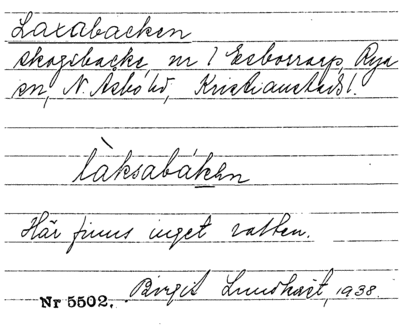 Laxabacken
skogsbacke, nr 1 Esborrarp, Rya
sn, N. Åsbo hd, Kristianstads l.
làksabák̲e̲n
Här finns inget vatten.
Nr 5502. Birgit Lundkvist, 1938.